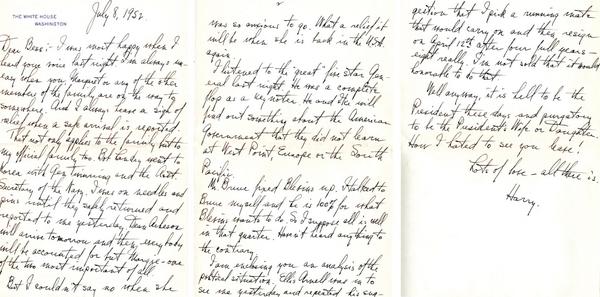 THE WHITE HOUSE
WASHINGTON
July 8, 1952
Dear Bess:- I was most happy when I
heard your voice last night. I'm always un-
easy when you, Margaret or any of the other
members of the family are on the way to
somewhere. And I always have a sigh of
relief when a safe arrival is reported.
That not only applies to the family but to
my official family too. Bob Lovett went to
Korea with Gen. Vanning and the Asst.
Secretary of the Navy. I was on needles and
pins until they safely returned and
reported to me yesterday. Dean Acheson
will arrive tomorrow and then everybody
will be accounted for but Margie - one
of the two most important of all.
But I couldn't say no when she
2
was so anxious to go. What a relief it
will be when she is back in the USA
again.
I listened to the great "five star Gen-
eral last night. He was a complete
flop as a key noter. He and Ike will
find out something about the American
Government that they did not learn
at West Point, Europe or the South
Pacific.
Mr. Bruce fixed Blevins up. I talked to
Bruce myself and he is 100% for what
Blevins wants to do. So I suppose all is well
in that quarter. Haven't heard anything to
the contrary.
I am enclosing you an analysis of the
political situation. Ellis Arnall was in to
see me yesterday and repeated his sug-
gestion that I pick a running mate
that would carry on and then resign
on April 12th after four full years-
eight really. I'm not sold that it would
honorable to do that.
Well anyway, it is hell to be the
President these days and purgatory
to be the President's Wife or Daughter.
How I hated to see you leave!
Lots of love - all there is.
Harry.